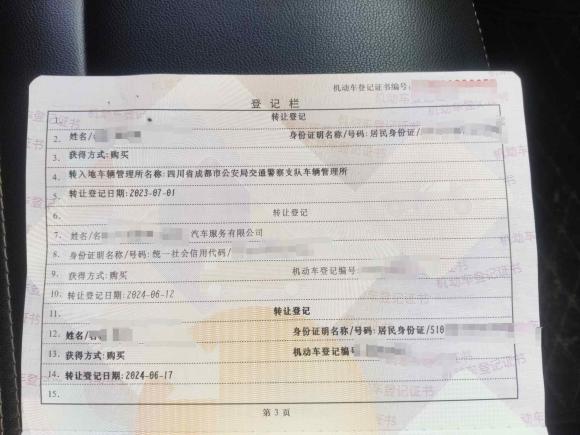 机动车登记证书编号:
登记栏
1. 转让登记
2. 姓名/ 身份证明名称/号码:居民身份证/
3. 获得方式:购买
4. 转入地车辆管理所名称:四川省成都市公安局交通警察支队车辆管理所
5. 转让登记日期:2023-07-01
6. 转让登记
7. 姓名/名 汽车服务有限公司
8. 身份证明名称/号码:统一社会信用代码/
9. 获得方式:购买 机动车登记编号:
10. 转让登记日期:2024-06-12
11. 转让登记
12. 姓名/ 身份证明名称/号码:居民身份证/510
13. 获得方式:购买 机动车登记编号
14. 转让登记日期:2024-06-17
15.
第 3 页